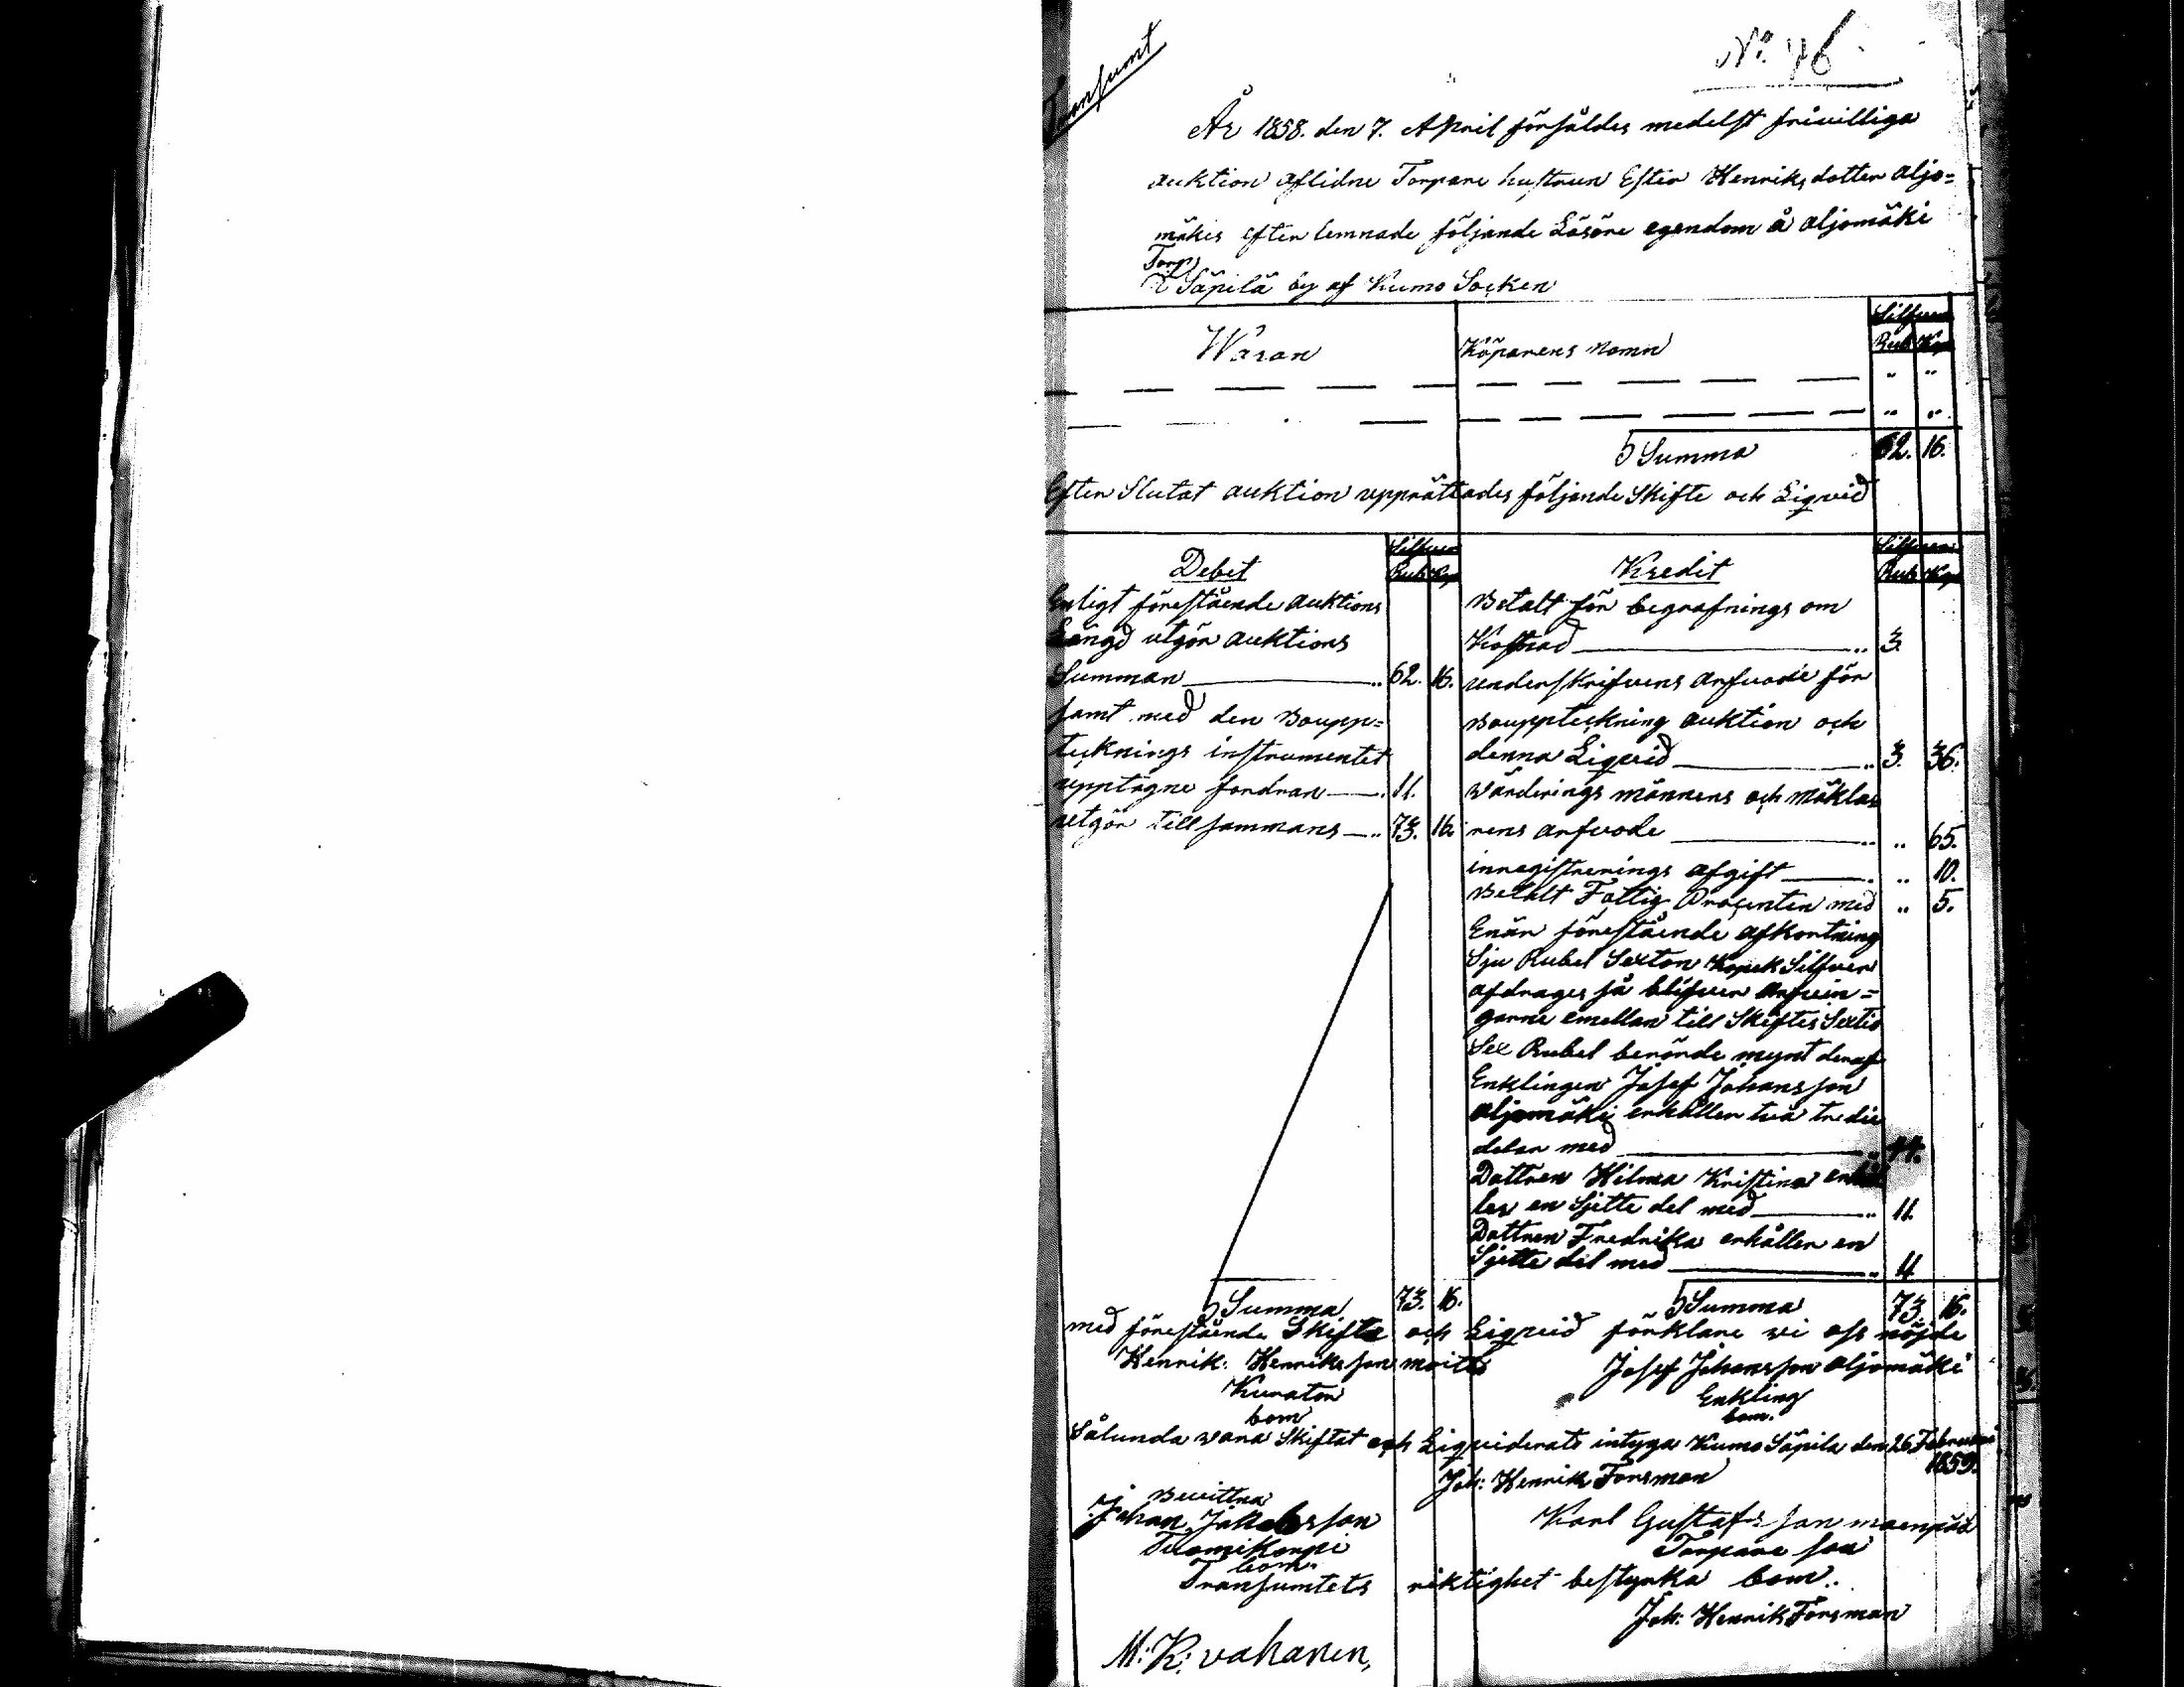 Transumt
No 76.
År 1858. den 7. April försåldes medelst frivilliga
auktion aflidne Torpare hustrun Ester Henriks dotter Aljo=
mäkis efter lemnade följande Lösöre egendom å Aljomäki
Torp
i Säpilä by af Kumo Socken
Waran Köparens namn Silfver
Rub Kop
" "
" "
Summa 62. 16.
Efter Slutat auktion upprättades följande Skifte och Liqvid
Debet Silfver
Rub Kop
Enligt förestående Auktions
Längd utgör Auktions
Summan 62. 16.
samt med den Boupp=
tecknings instrumentet
upptagne fordran 11.
utgör till sammans 73. 16.
Summa 73. 16.
Kredit Silfver
Rub Kop
Betalt för begrafnings om
Kostnad 3.
underskrifvens arfvode för
Bouppteckning auktion och
denna Liqvid 3. 36.
Wärderings männens och mäkla=
rens arfvode " 65.
inregistrerings afgift " 10.
Betalt Fattig Procenten med " 5.
Enär förestående afkortning
Sju Rubel Sexton Kopek Silfver
afdrages så blifver Arfvin=
garne emellan till Skiftes Sextio
Sex Rubel berörde mynt deraf
Enklingen Josef Johansson
Aljomäki erhåller två tredie
delar med 44.
Dottren Hilma Kristina erhål
ler en Sjette del med 11.
Dottren Fredrika erhåller en
Sjette del med 11
Summa 73. 16.
med förestående Skifte och Liqvid förklare vi oss nöjde
Henrik Henriksson
Kurator
bom
Josef Johansson Aljomäki
Enkling
bom.
Sålunda vara Skiftat och Liqviderats intyga Kumo Säpilä den 26 Februari
1859.
Joh: Henrik Forsman
Bevittna
Johan Jakobsson
Tuomikorpi
bom.
Karl Gustafs son Maenpää
Torpare son
bom.
Transumtets riktighet bestyrka
Joh: Henrik Forsman
M: K: vahanen,